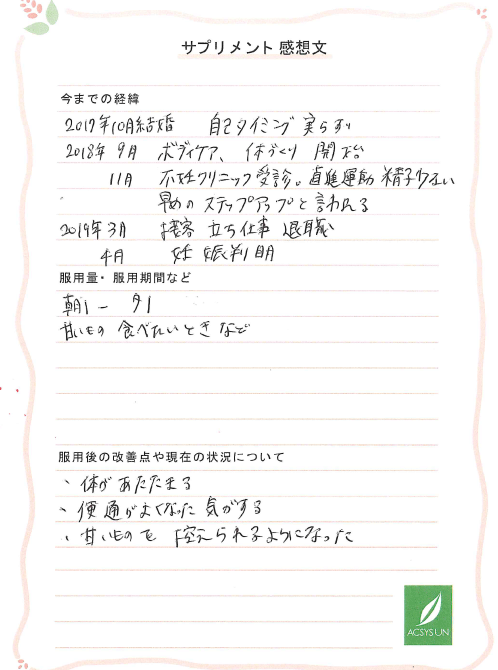 サプリメント 感想文
今までの経緯
2017年10月結婚 自己タイミング 実らず
2018年 9月 ボディケア、体づくり 開始
11月 不妊クリニック受診。直進運動 精子少ない
早めの ステップアップと言われる
2019年 3月 接客 立ち仕事 退職
4月 妊娠判明
服用量・服用期間など
朝1 － 夕1
甘いもの 食べたいときなど
服用後の改善点や現在の状況について
、体があたたまる
、便通がよくなった 気がする
、甘いものを 控えられるようになった
ACSYSUN